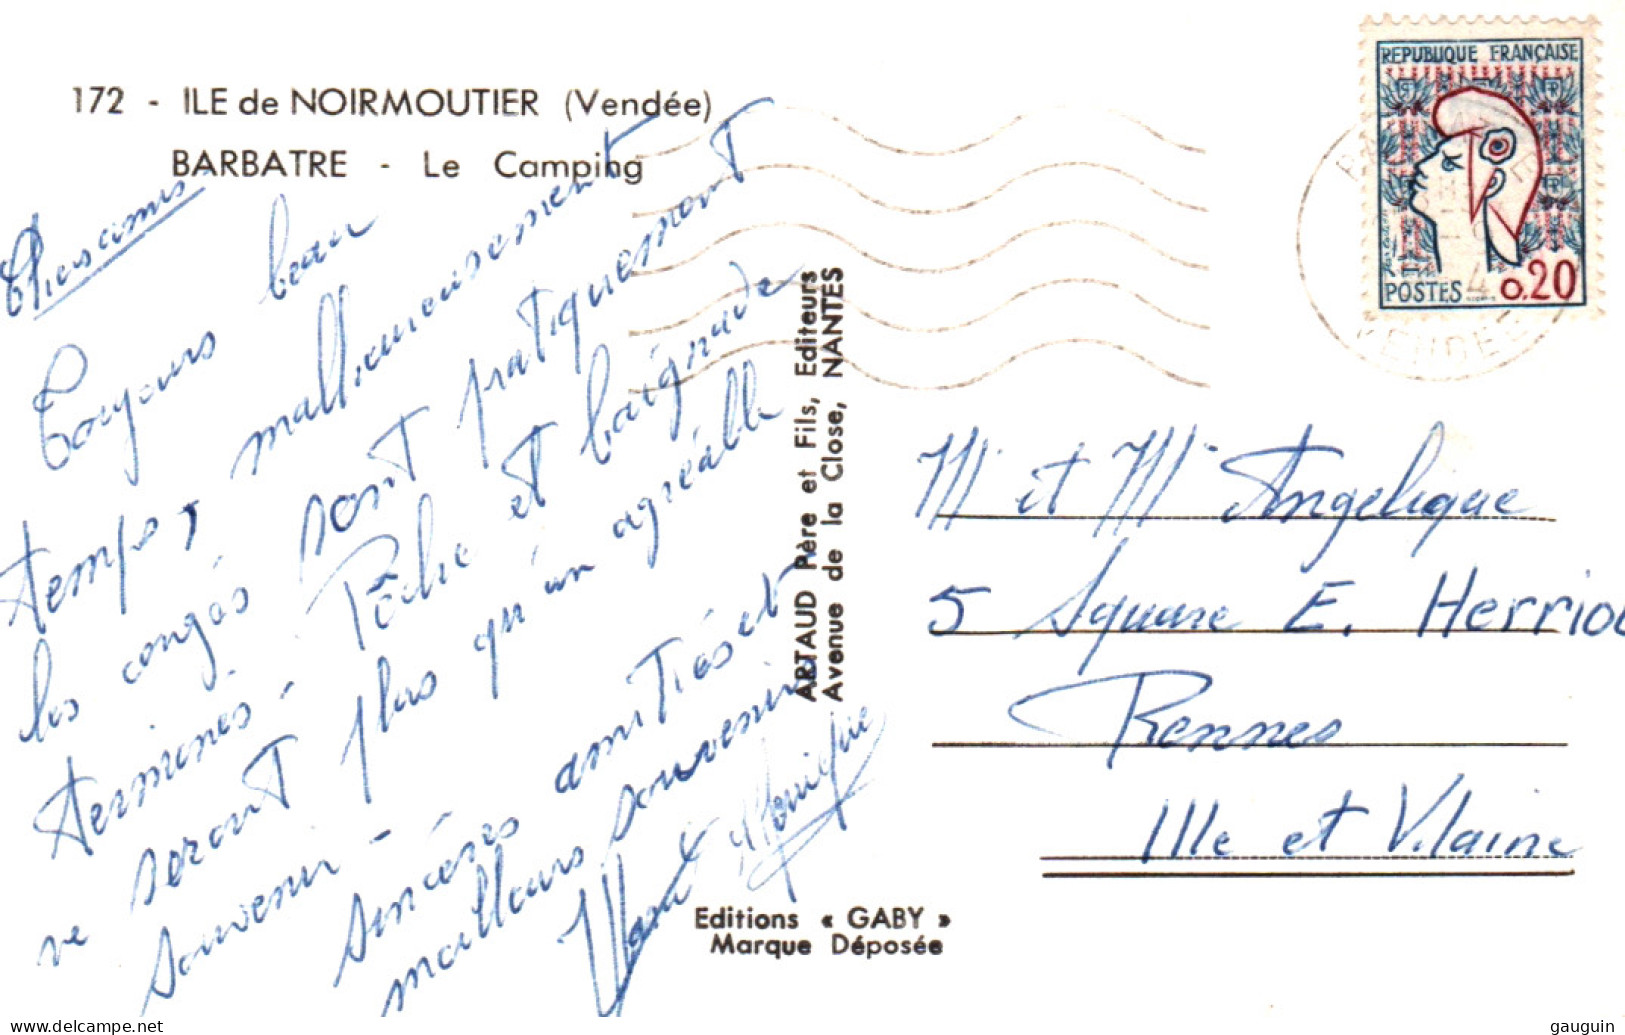 172 - ILE de NOIRMOUTIER (Vendée)
BARBATRE - Le Camping
Chers amis.
Toujours beau
temps, malheureusement
les congés sont pratiquement
terminés. Pêche et baignade
ne seront plus qu'un agréable
souvenir -
sincères amitiés et
meilleurs souvenirs
Monique
ARTAUD Père et Fils, Editeurs
Avenue de la Close, NANTES
Editions « GABY »
Marque Déposée
REPUBLIQUE FRANÇAISE
POSTES 0,20
VENDEE
M et Me Angelique
5 Square E. Herriot
Rennes
Ille et Vilaine
delcampe.net
gauguin